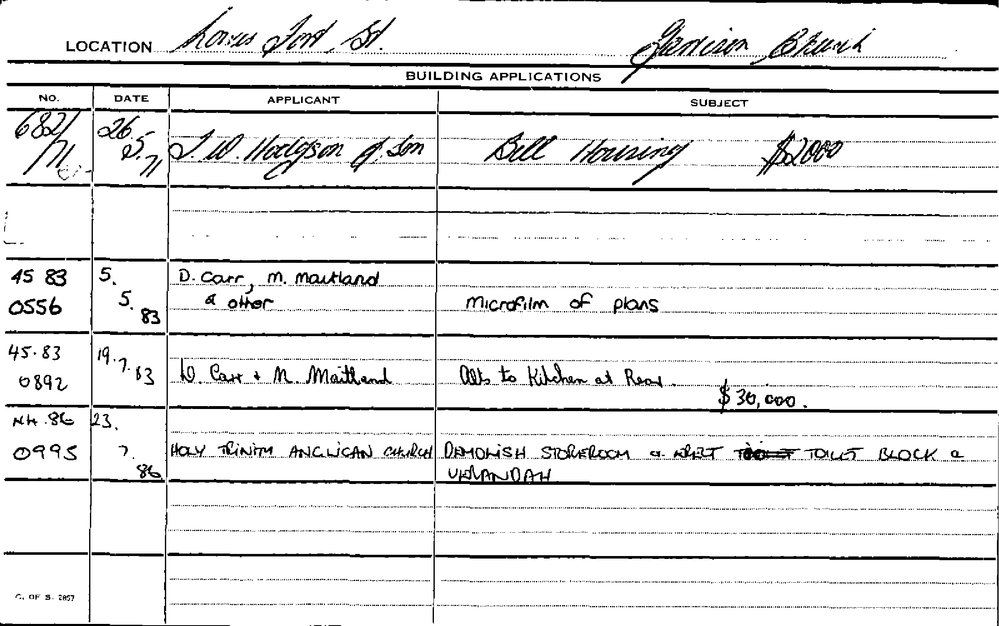 LOCATION Lower Fort St. Garrison Church
BUILDING APPLICATIONS
NO. DATE APPLICANT SUBJECT
682/ 26.
/71 5. J. W. Hodgson & Son Bell Housing $2000
71
45 83 5. D. Carr, M. Maitland
0556 5. & other microfilm of plans
83
45.83 19.7.83
0892 D. Carr + M. Maitland Alts to Kitchen at Rear.
$30,000.
NH.86 23.
0995 7. HOLY TRINITY ANGLICAN CHURCH DEMOLISH STOREROOM & ERECT TOILET BLOCK &
86 VERANDAH
C. OF S. 2857